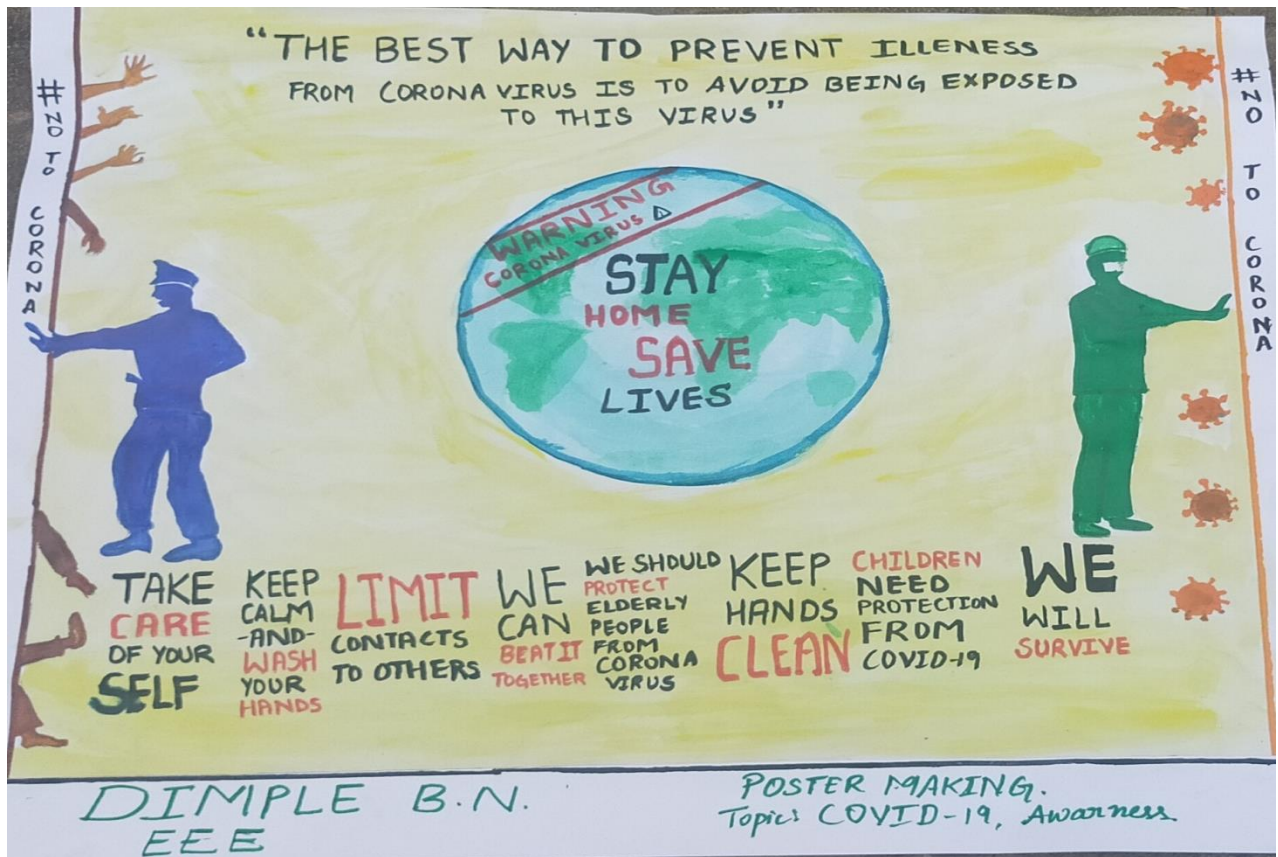 "THE BEST WAY TO PREVENT ILLENESS
FROM CORONA VIRUS IS TO AVOID BEING EXPOSED
TO THIS VIRUS"
#NO TO CORONA
#NO TO CORONA
WARNING
CORONA VIRUS
STAY
HOME
SAVE
LIVES
TAKE
CARE
OF YOUR
SELF
KEEP
CALM
-AND-
WASH
YOUR
HANDS
LIMIT
CONTACTS
TO OTHERS
WE
CAN
BEAT IT
TOGETHER
WE SHOULD
PROTECT
ELDERLY
PEOPLE
FROM
CORONA
VIRUS
KEEP
HANDS
CLEAN
CHILDREN
NEED
PROTECTION
FROM
COVID-19
WE
WILL
SURVIVE
DIMPLE B.N.
EEE
POSTER MAKING.
Topic: COVID-19, Awarness.